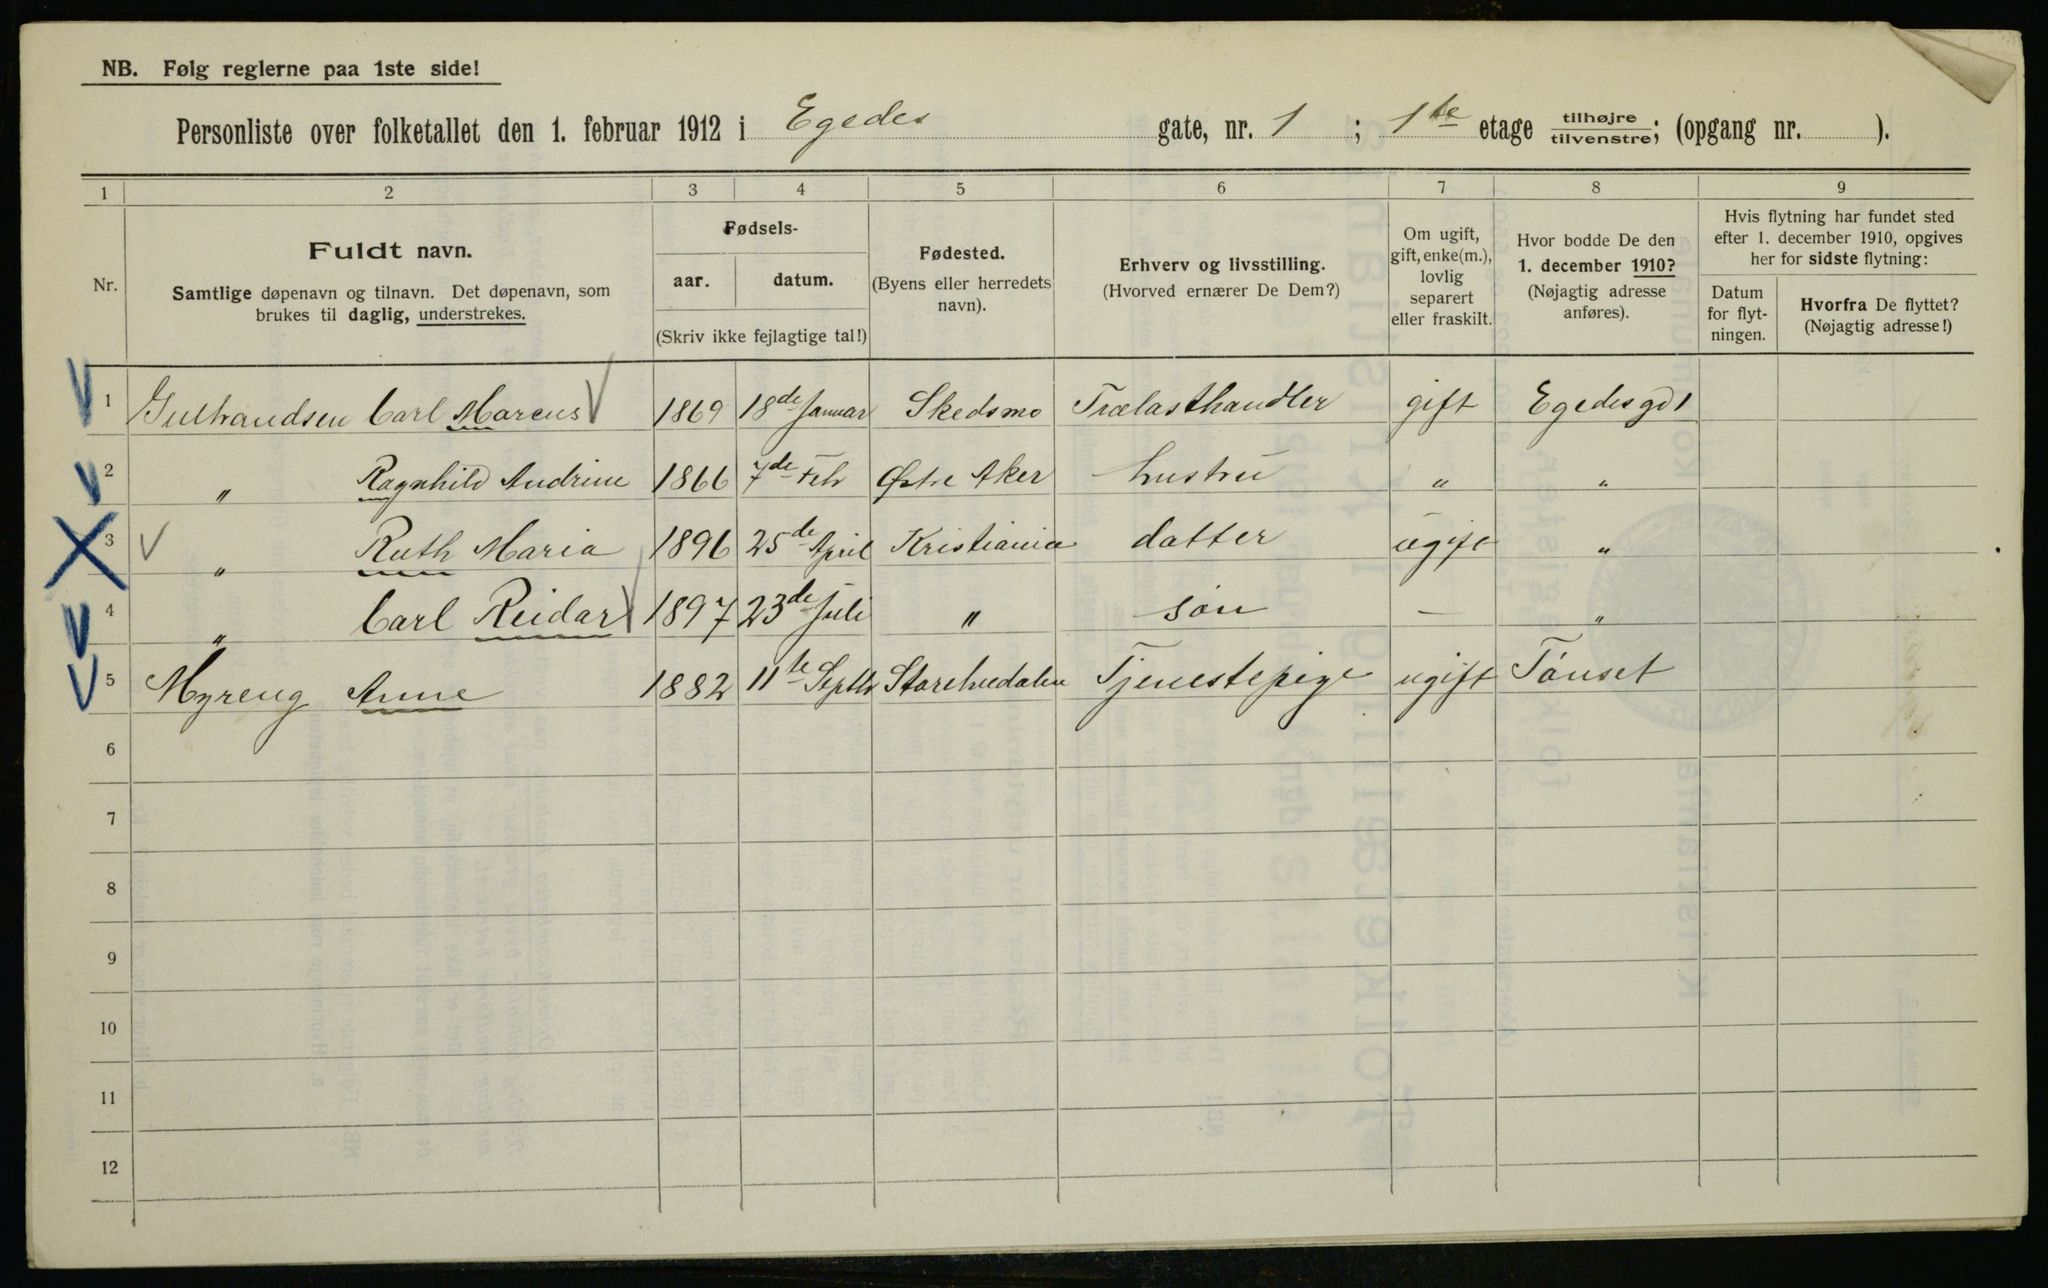 NB. Følg reglerne paa 1ste side!
Personliste over folketallet den 1. februar 1912 i Egedes gate, nr. 1 ; 1te etage tilhøjre/tilvenstre; (opgang nr. ).
1 2 3 4 5 6 7 8 9
Nr.
Fuldt navn.
Samtlige døpenavn og tilnavn. Det døpenavn, som
brukes til daglig, understrekes.
Fødsels-
aar. datum.
(Skriv ikke fejlagtige tal!)
Fødested.
(Byens eller herredets
navn).
Erhverv og livsstilling.
(Hvorved ernærer De Dem?)
Om ugift,
gift, enke(m.),
lovlig
separert
eller fraskilt.
Hvor bodde De den
1. december 1910?
(Nøjagtig adresse
anføres).
Hvis flytning har fundet sted
efter 1. december 1910, opgives
her for sidste flytning:
Datum
for flyt-
ningen.
Hvorfra De flyttet?
(Nøjagtig adresse!)
1 Gulbrandsen Carl Marcus 1869 18de Januar Skedsmo Trælasthandler gift Egedesgd 1
2 " Ragnhild Andrine 1866 7de Feb Østre Aker hustru " "
3 " Ruth Maria 1896 25de April Kristiania datter ugift "
4 " Carl Reidar 1897 23de Juli " søn — "
5 Myreng Anne 1882 11te Septbr Tjenestepige ugift Tønset
6
7
8
9
10
11
12